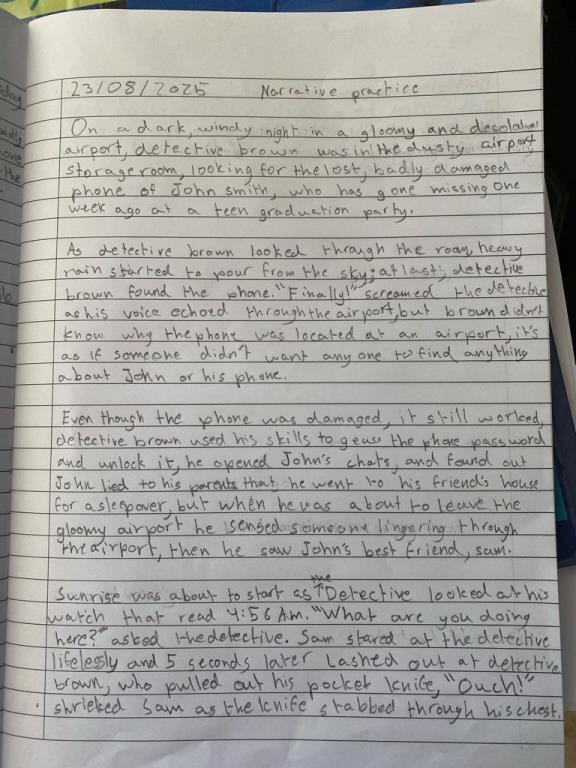 23/08/2025 Narrative practice
On a dark, windy night in a gloomy and desolated
airport, detective brown was in the dusty airport
storage room, looking for the lost, badly damaged
phone of John smith, who has gone missing one
week ago at a teen graduation party.
As detective brown looked through the room, heavy
rain started to pour from the sky; at last, detective
brown found the phone. "Finally!" screamed the detective
as his voice echoed through the airport, but brown didn't
know why the phone was located at an airport, it's
as if someone didn't want any one to find anything
about John or his phone.
Even though the phone was damaged, it still worked,
detective brown used his skills to geuss the phone password
and unlock it, he opened John's chats, and found out
John lied to his parents that he went to his friend's house
for a sleepover, but when he was about to leave the
gloomy airport he sensed someone lingering through
the airport, then he saw John's best friend, sam.
Sunrise was about to start as the Detective looked at his
watch that read 4:56 Am. "What are you doing
here?" asked the detective. Sam stared at the detective
lifelessly and 5 seconds later Lashed out at detective
brown, who pulled out his pocket knife, "Ouch!"
shrieked Sam as the knife stabbed through his chest.